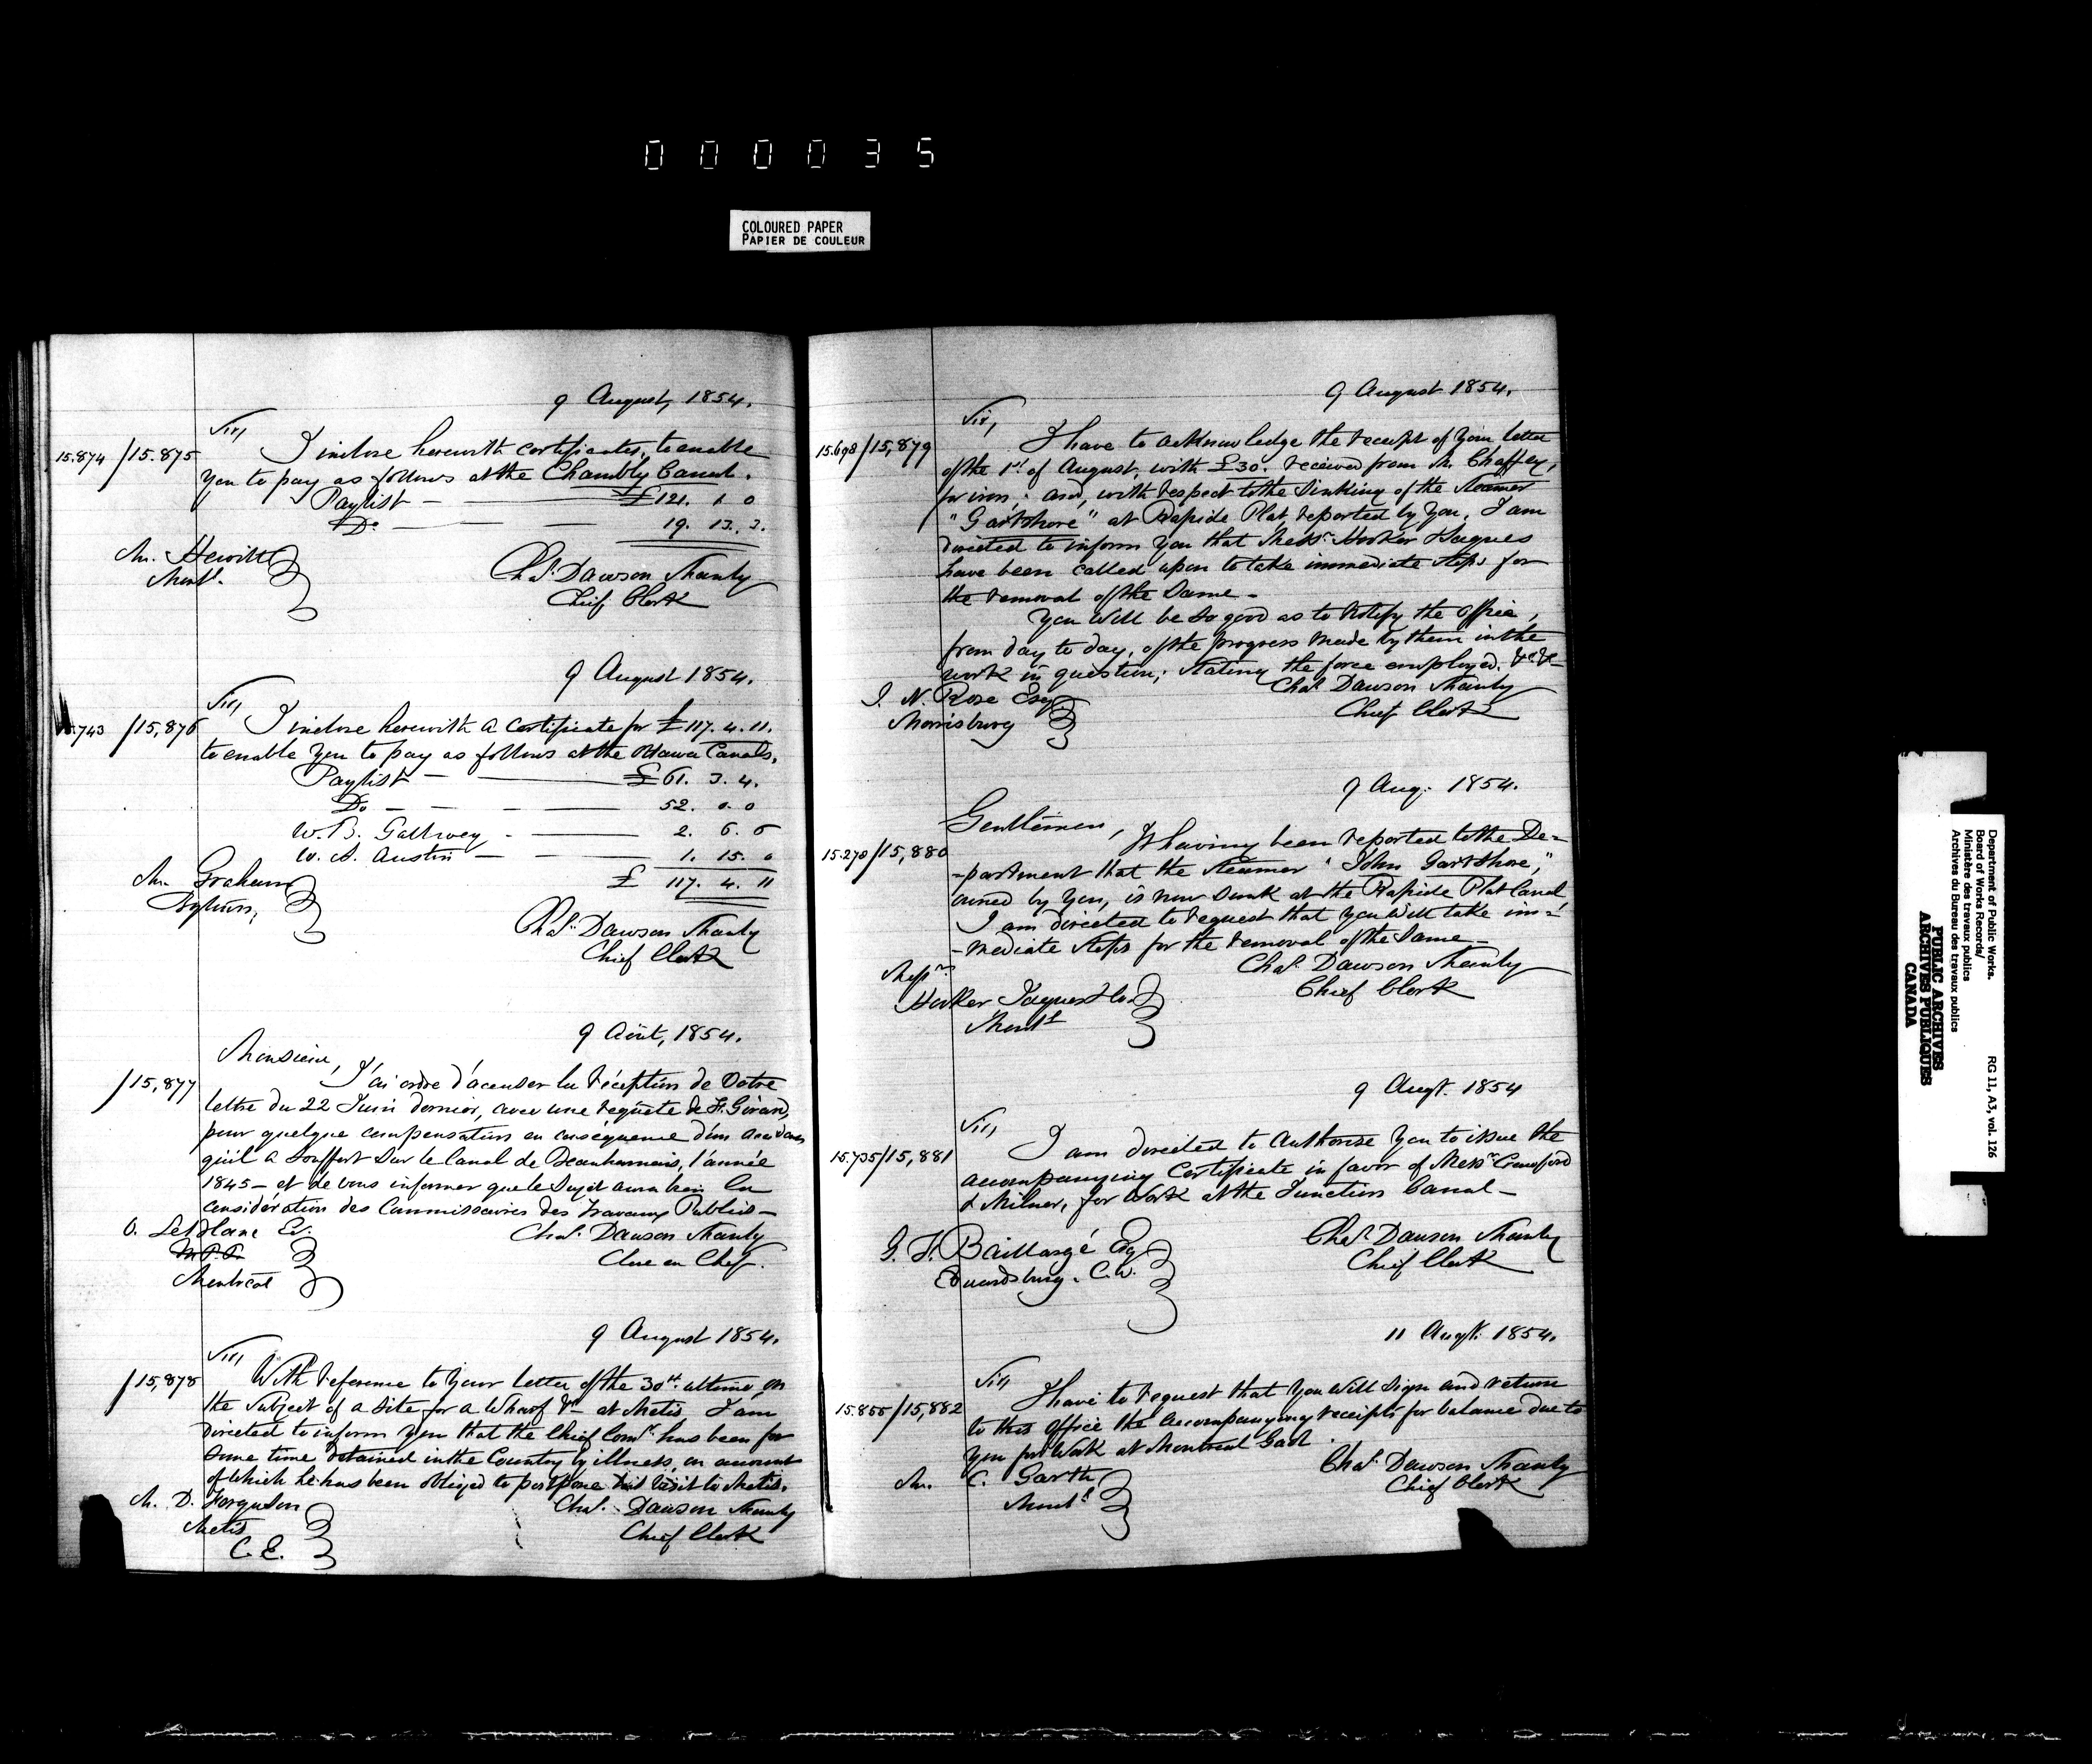 000035
COLOURED PAPER
PAPIER DE COULEUR
9 August, 1854.
Sir,
15.874 /15.875 I inclose herewith certificates, to enable
you to pay as follows at the Chambly Canal.
Paylist — £121. 1 0
Do — 19. 13. 3.
Mr. Hewitt
Montl.
Chas. Dawson Shanly
Chief Clerk
9 August 1854.
Sir,
743 /15,876 I inclose herewith a Certificate for £117. 4. 11.
to enable you to pay as follows at the Ottawa Canals.
Paylist — £61. 3. 4.
Do — 52. 0. 0
W. B. Gallwey — 2. 6.
W. A. Austin — 1. 15. 0
£ 117. 4. 11
Mr. Graham
Chas. Dawson Shanly
Chief Clerk
9 Août, 1854.
Monsieur,
/15,877 J'ai ordre d'acuser la réception de Votre
lettre du 22 Juin dernier, avec une requête de F. Girard,
pour quelque compensation en conséquence d'un accident
qu'il a souffert sur le Canal de Beauharnais, l'année
1845 — et de vous informer que le sujet aura bien la
considération des Commissaires des Travaux Publics —
O. LeBlanc Er.
M.P.P.
Montréal
Chas. Dawson Shanly
Clerc en Chef.
9 August 1854.
Sir,
/15,878 With reference to your letter of the 30th. ultimo, on
the subject of a site for a Wharf &c at Metis, I am
directed to inform you that the Chief Comr. has been for
some time detained in the Country by illness, on account
of which he has been obliged to postpone his visit to Metis.
Mr. D. Ferguson
Metis
C. E.
Chas. Dawson Shanly
Chief Clerk
9 August 1854.
Sir,
15.698/15,879 I have to acknowledge the receipt of your letter
of the 1st of August, with £30. received from Mr. Chaffey,
for iron; and, with respect to the sinking of the steamer
"Gartshore" at Rapide Plat, reported by you, I am
directed to inform you that Messrs. Hooker Jaques
have been called upon to take immediate steps for
the removal of the same —
You will be so good as to notify the office,
from day to day, of the progress made by them in the
work in question; stating the force employed. &c &c —
J. N. Rose Esqr
Morrisburg
Chas. Dawson Shanly
Chief Clerk
9 Aug. 1854.
Gentlemen,
15.270/15,880 It having been reported to the De-
-partment that the Steamer "John Gartshore,"
owned by you, is now sunk at the Rapide Plat Canal,
I am directed to request that you will take im-
-mediate steps for the removal of the same —
Messrs
Hooker Jaques & Co.
Montl
Chas. Dawson Shanly
Chief Clerk
9 Augt. 1854
Sir,
15.735/15,881 I am directed to authorise you to issue the
accompanying Certificate in favor of Messrs Crawford
& Milner, for Work at the Junction Canal —
G. F. Baillargé Esqr
Edwardsburg. C.W.
Chas. Dawson Shanly
Chief Clerk
11 Augt. 1854.
Sir
15.855/15,882 I have to request that you will sign and return
to this Office the accompanying receipts for balance due to
you for Work at Montreal Gaol.
Mr. C. Garth,
Montl
Chas. Dawson Shanly
Chief Clerk
Department of Public Works.
Board of Works Records/
Ministère des travaux publics
Archives du Bureau des travaux publics
RG 11, A3, vol. 126
PUBLIC ARCHIVES
ARCHIVES PUBLIQUES
CANADA